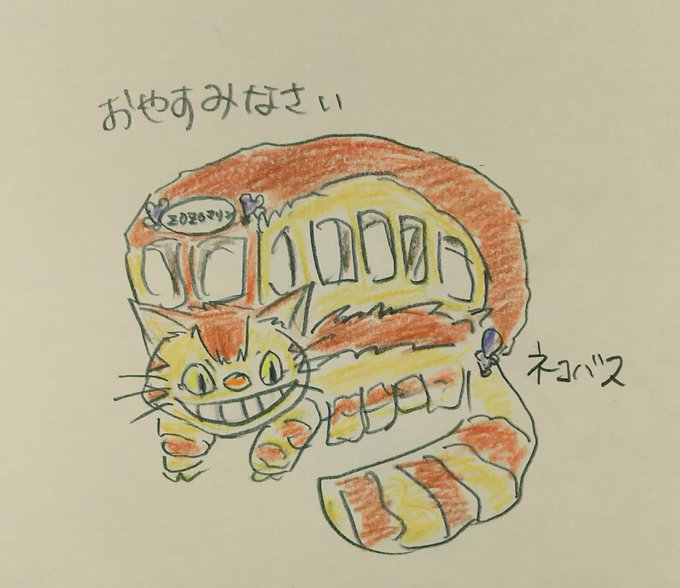 おやすみなさい
ZOZOマリン
ネコバス